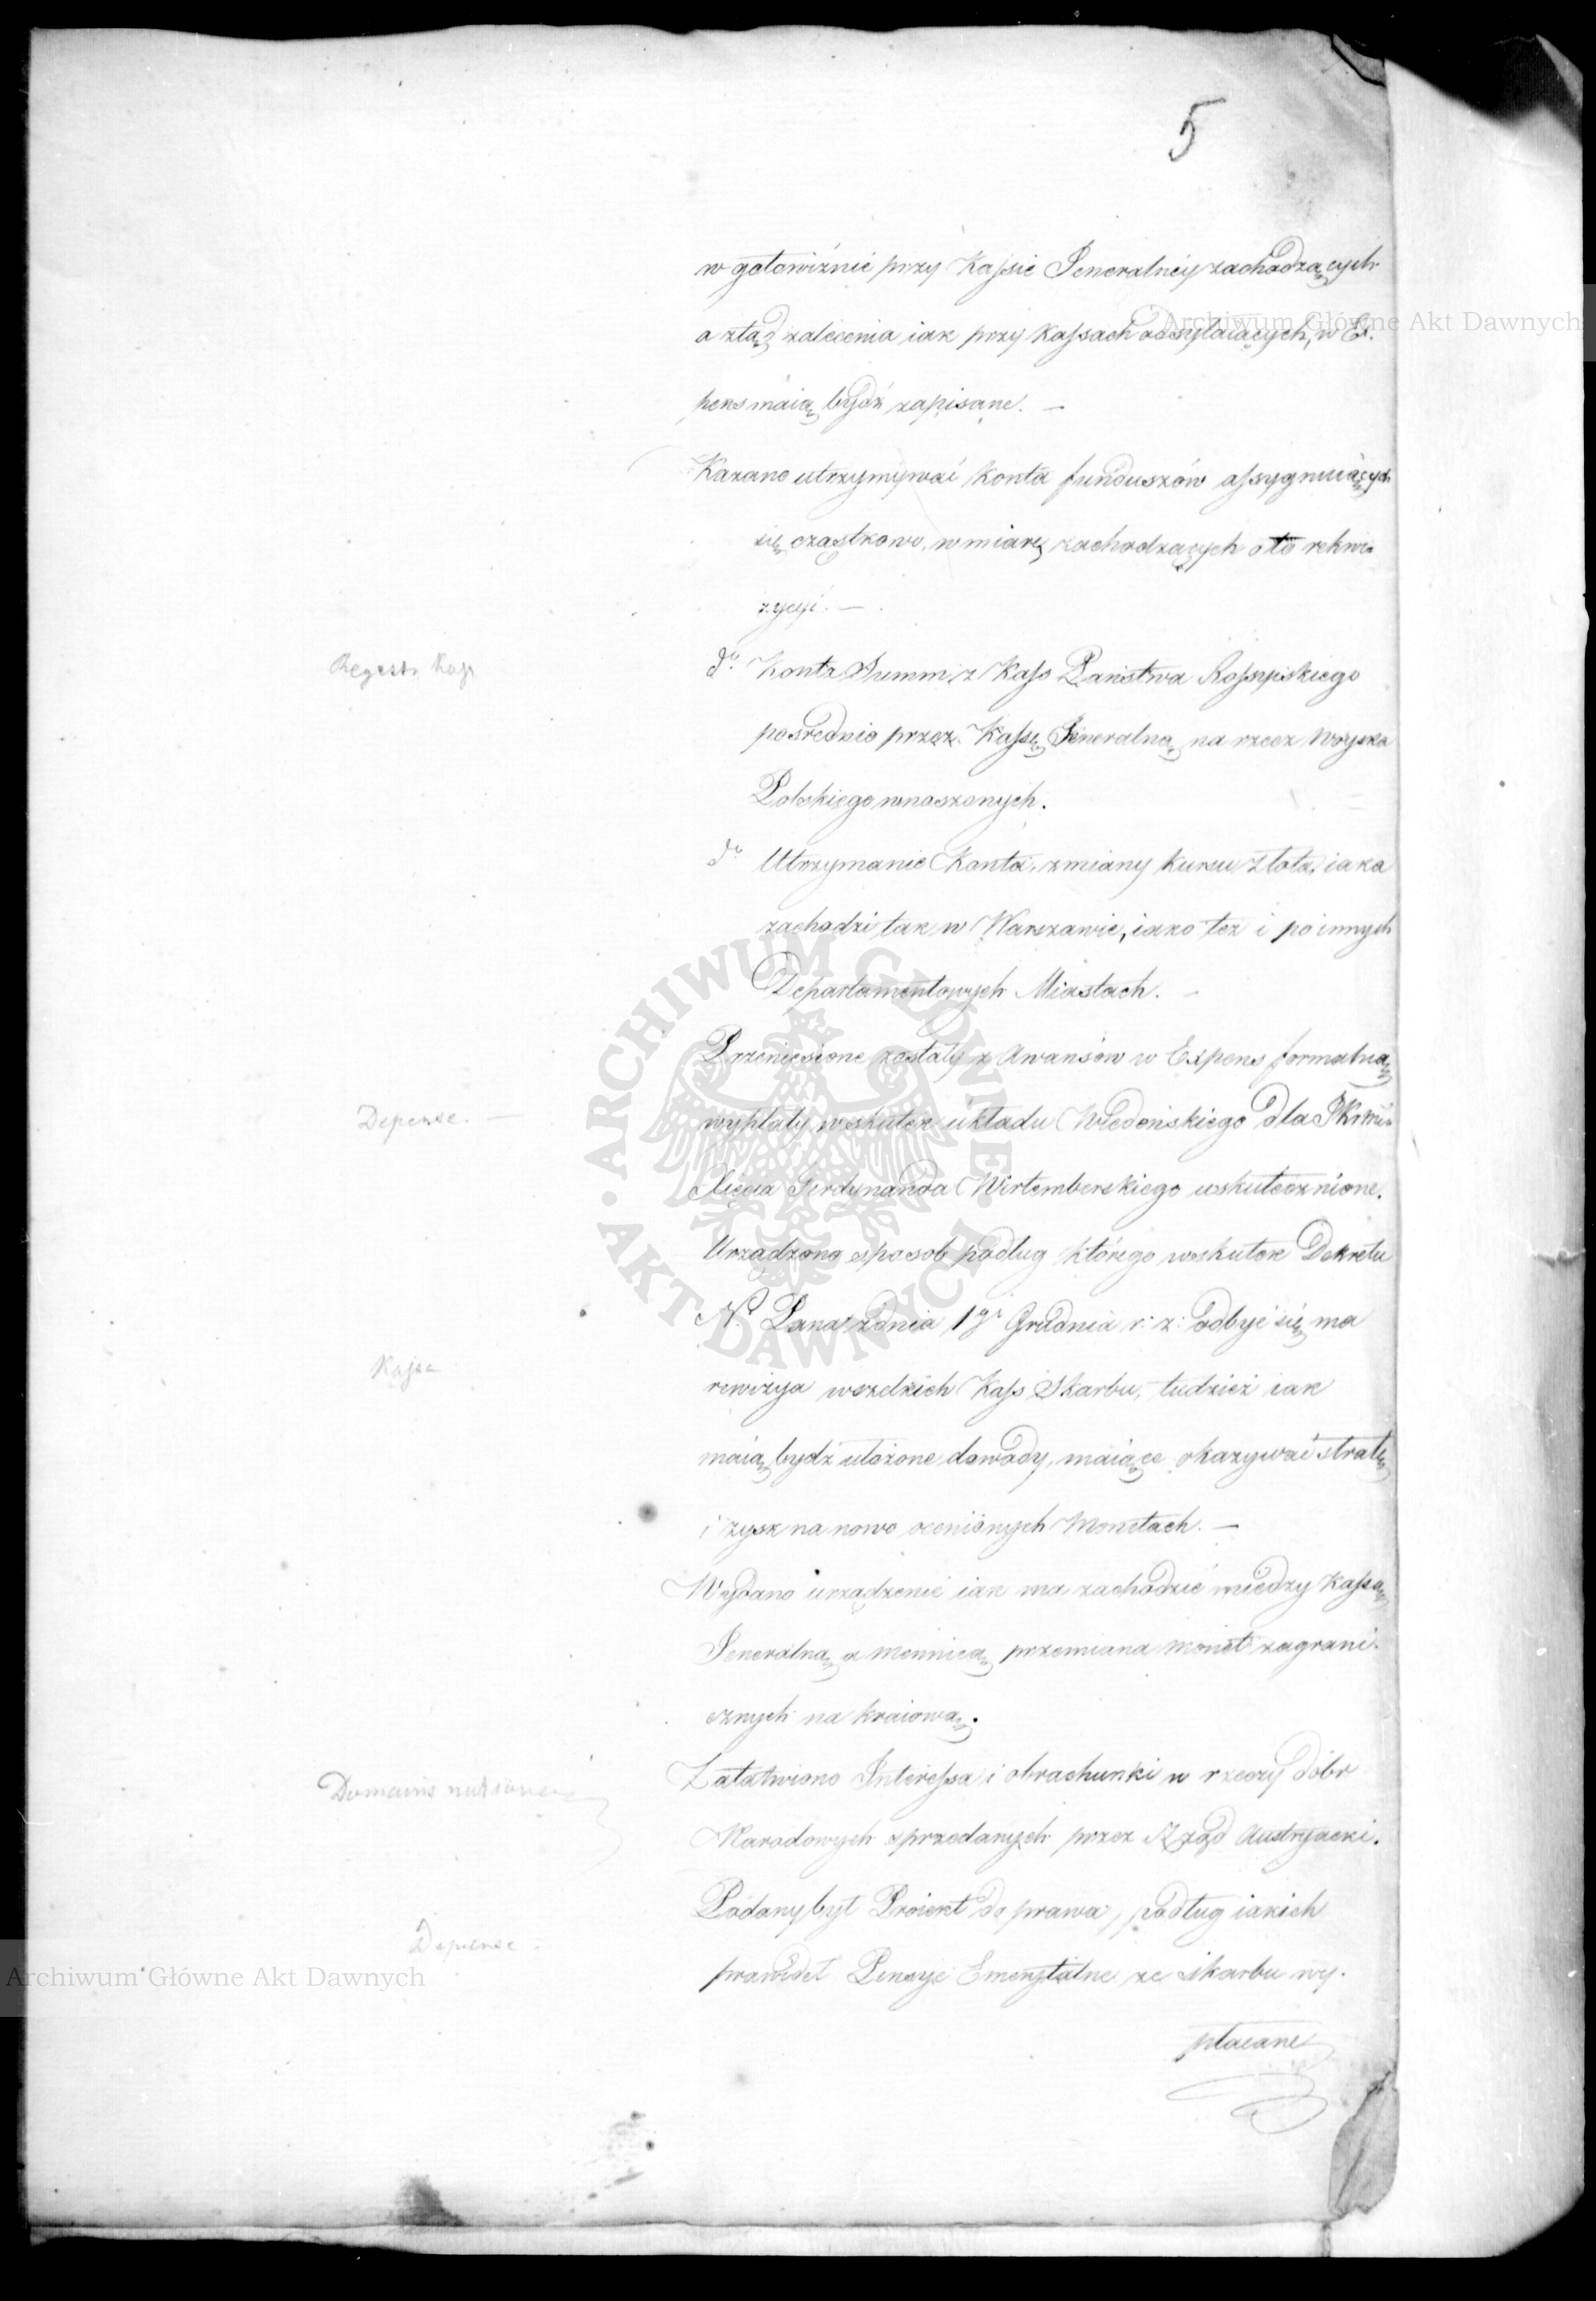 5
w gotowiźnie przy Kassie Jeneralnéy zachodzących
a ztąd zalecenia iak przy Kassach odsyłaiących, w Ex-
pens maią bydź zapisane. —
Kazano utrzymywać Konta funduszów assygnuiących
się cząstkowo, w miarę zachodzących o to rekwi-
zycyi. —
Regestr. Kass
do. Konta Summ, z Kass Państwa Rossyiskiego
pośrednio przez Kassę Jeneralną na rzecz Woyska
Polskiego wnoszonych.
do Utrzymanie Konta, zmiany kursu złota, iaka
zachodzi tak w Warszawie, iako też i po innych
Departamentowych Miastach. —
Przeniesione zostały z Awansów w Expens formalną
Depense. —
wypłaty w skutek układu Wiedeńskiego dla
Xięcia Ferdynanda Wirtemberskiego uskutecznione.
Urządzono sposob podług którego w skutek Dekretu
N. Pana z dnia 1go Grudnia r: z: odbyć się ma
Kassa
rewizya wszelkich Kass Skarbu, tudzież iak
maią bydź ułożone dowody, maiące okazywać stratę
i zysk na nowo ocenionych Monetach. —
Wydano urządzenie iak ma zachodzić między Kassą
Jeneralną a mennicą przemiana monet zagrani-
cznych na kraiową.
Załatwiono Interessa i obrachunki w rzeczy dóbr
Domains
Narodowych sprzedanych przez Rząd Austryacki.
Podany był Proiekt do prawa, podług iakich
Depense
prawideł Pensye Emerytalne ze skarbu wy-
płacane
Archiwum Główne Akt Dawnych
Archiwum Główne Akt Dawnych
ARCHIWUM GŁÓWNE AKT DAWNYCH